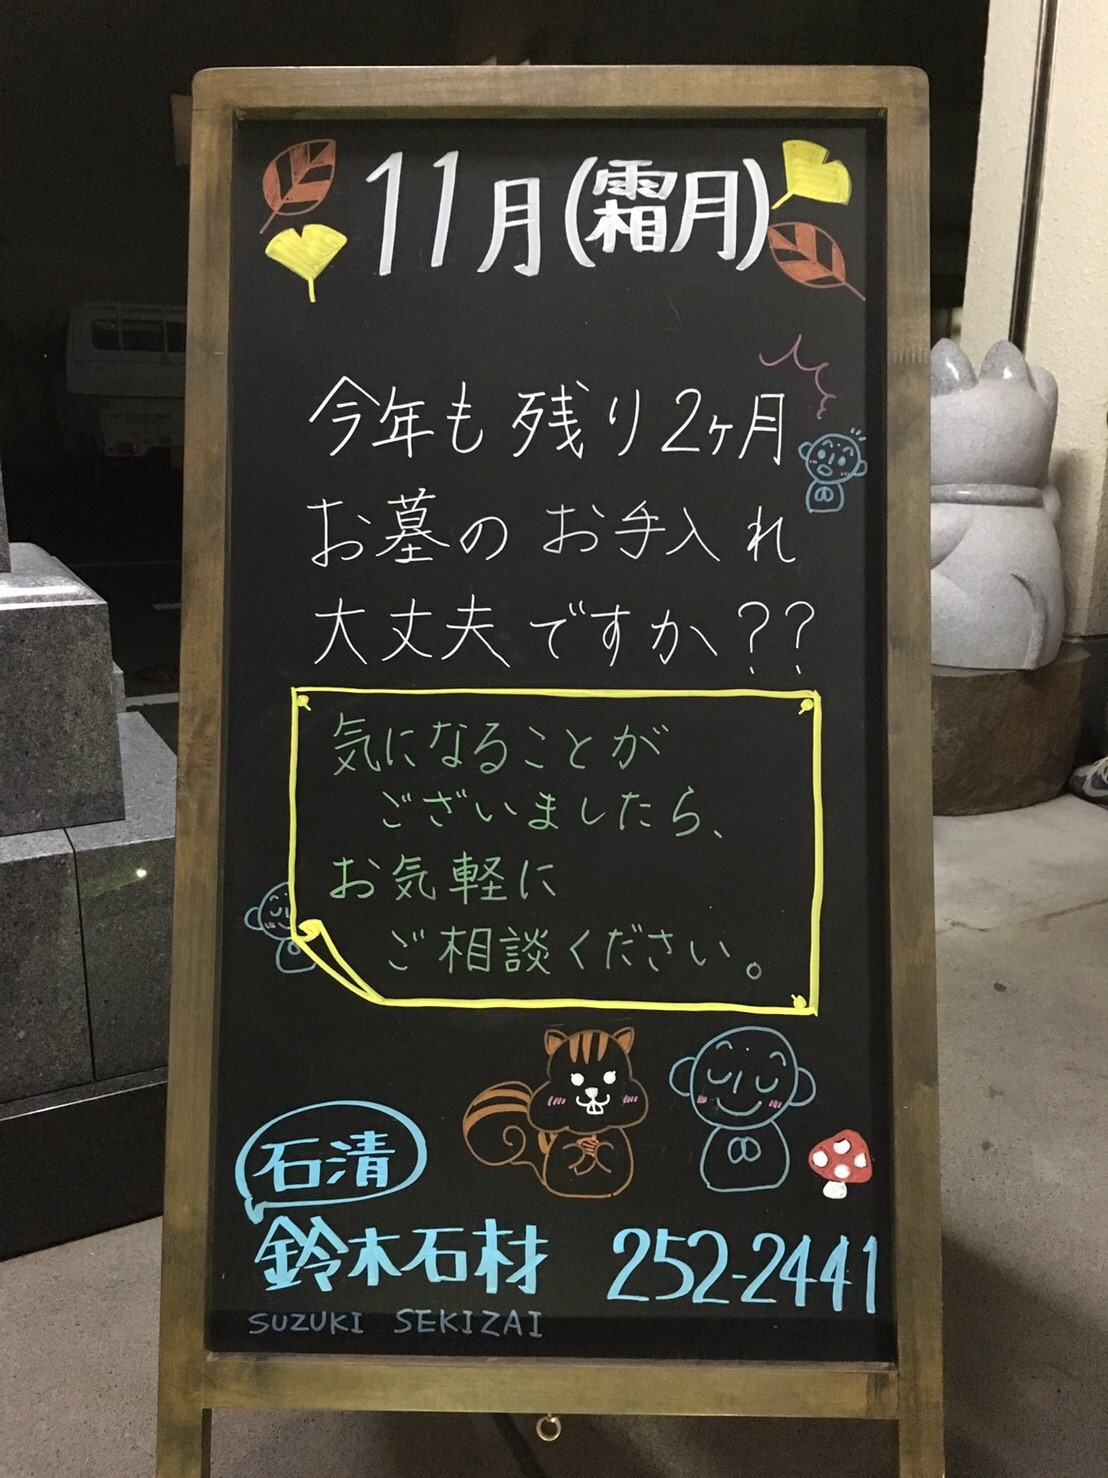 11月(霜月)
今年も残り2ヶ月
お墓のお手入れ
大丈夫ですか??
気になることが
ございましたら、
お気軽に
ご相談ください。
石清
鈴木石材 252-2441
SUZUKI SEKIZAI